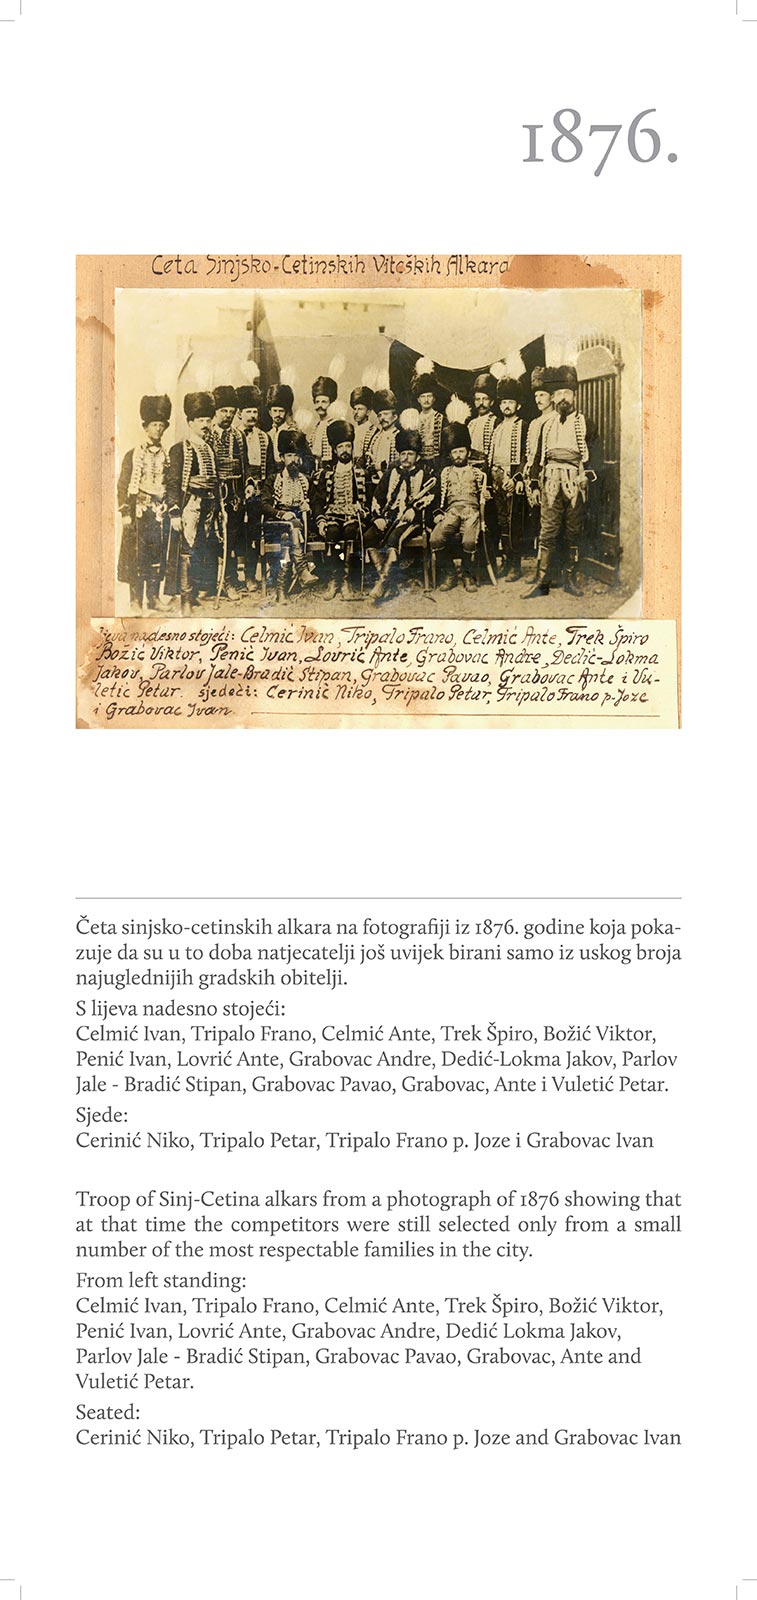 1876.
Četa Sinjsko-Cetinskih Viteških Alkara
nadesno stojeći: Celmić Ivan, Tripalo Frano, Celmić Ante, Trek Špiro
Božić Viktor, Penić Ivan, Lovrić Ante, Grabovac Andre, Dedić-Lokma
Jakov, Parlov Jale-Bradić Stipan, Grabovac Pavao, Grabovac Ante i Vu-
letić Petar. sjedeći: Cerinić Niko, Tripalo Petar, Tripalo Frano p. Joze
i Grabovac Ivan.
Četa sinjsko-cetinskih alkara na fotografiji iz 1876. godine koja poka-
zuje da su u to doba natjecatelji još uvijek birani samo iz uskog broja
najuglednijih gradskih obitelji.
S lijeva nadesno stojeći:
Celmić Ivan, Tripalo Frano, Celmić Ante, Trek Špiro, Božić Viktor,
Penić Ivan, Lovrić Ante, Grabovac Andre, Dedić-Lokma Jakov, Parlov
Jale - Bradić Stipan, Grabovac Pavao, Grabovac, Ante i Vuletić Petar.
Sjede:
Cerinić Niko, Tripalo Petar, Tripalo Frano p. Joze i Grabovac Ivan
Troop of Sinj-Cetina alkars from a photograph of 1876 showing that
at that time the competitors were still selected only from a small
number of the most respectable families in the city.
From left standing:
Celmić Ivan, Tripalo Frano, Celmić Ante, Trek Špiro, Božić Viktor,
Penić Ivan, Lovrić Ante, Grabovac Andre, Dedić Lokma Jakov,
Parlov Jale - Bradić Stipan, Grabovac Pavao, Grabovac, Ante and
Vuletić Petar.
Seated:
Cerinić Niko, Tripalo Petar, Tripalo Frano p. Joze and Grabovac Ivan